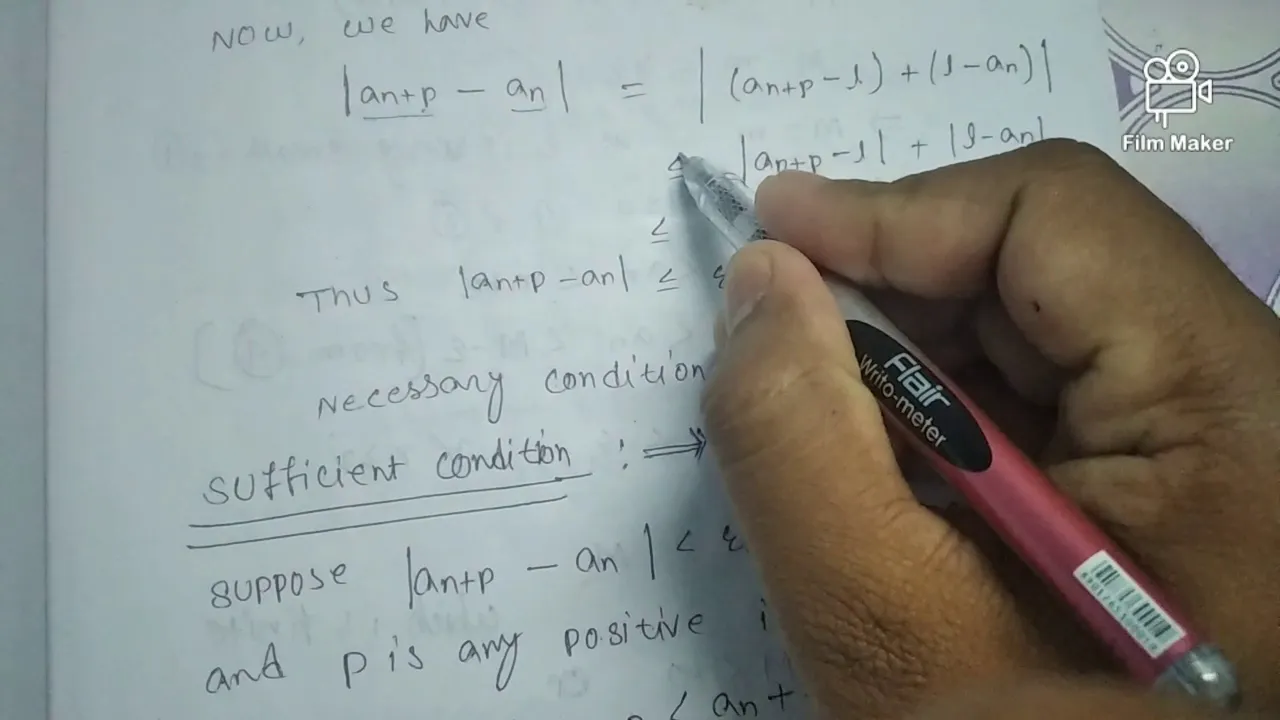 NOW, we have
|an+p - an| = |(an+p - l) + (l - an)|
≤ |an+p - l| + |l - an|
≤
Thus |an+p - an| ≤ ε
Necessary condition
sufficient condition : ⟹
suppose |an+p - an| < ε
and p is any positive
< an+
Film Maker
Flair
Writo-meter